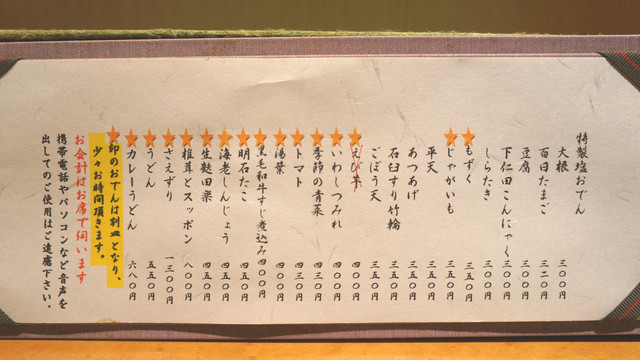 特製塩おでん
大根 三〇〇円
百日たまご 三二〇円
豆腐 三〇〇円
下仁田こんにゃく 三〇〇円
しらたき 三〇〇円
★もずく 三五〇円
★じゃがいも 三五〇円
平天 三五〇円
あつあげ 三五〇円
石臼すり竹輪 三五〇円
ごぼう天 三五〇円
★えび芋 四〇〇円
★いわしつみれ 四〇〇円
★季節の青菜 四三〇円
★トマト 四三〇円
★湯葉 四〇〇円
★黒毛和牛すじ煮込み 四〇〇円
★明石たこ 四五〇円
★海老しんじょう 四五〇円
★生麩田楽 四五〇円
★椎茸とスッポン 八〇〇円
★さえずり 一三〇〇円
★うどん 五五〇円
★カレーうどん 六八〇円
★印のおでんは別皿となり、
少々お時間頂きます。
お会計はお席で伺います
携帯電話やパソコンなど音声を
出してのご使用はご遠慮下さい。